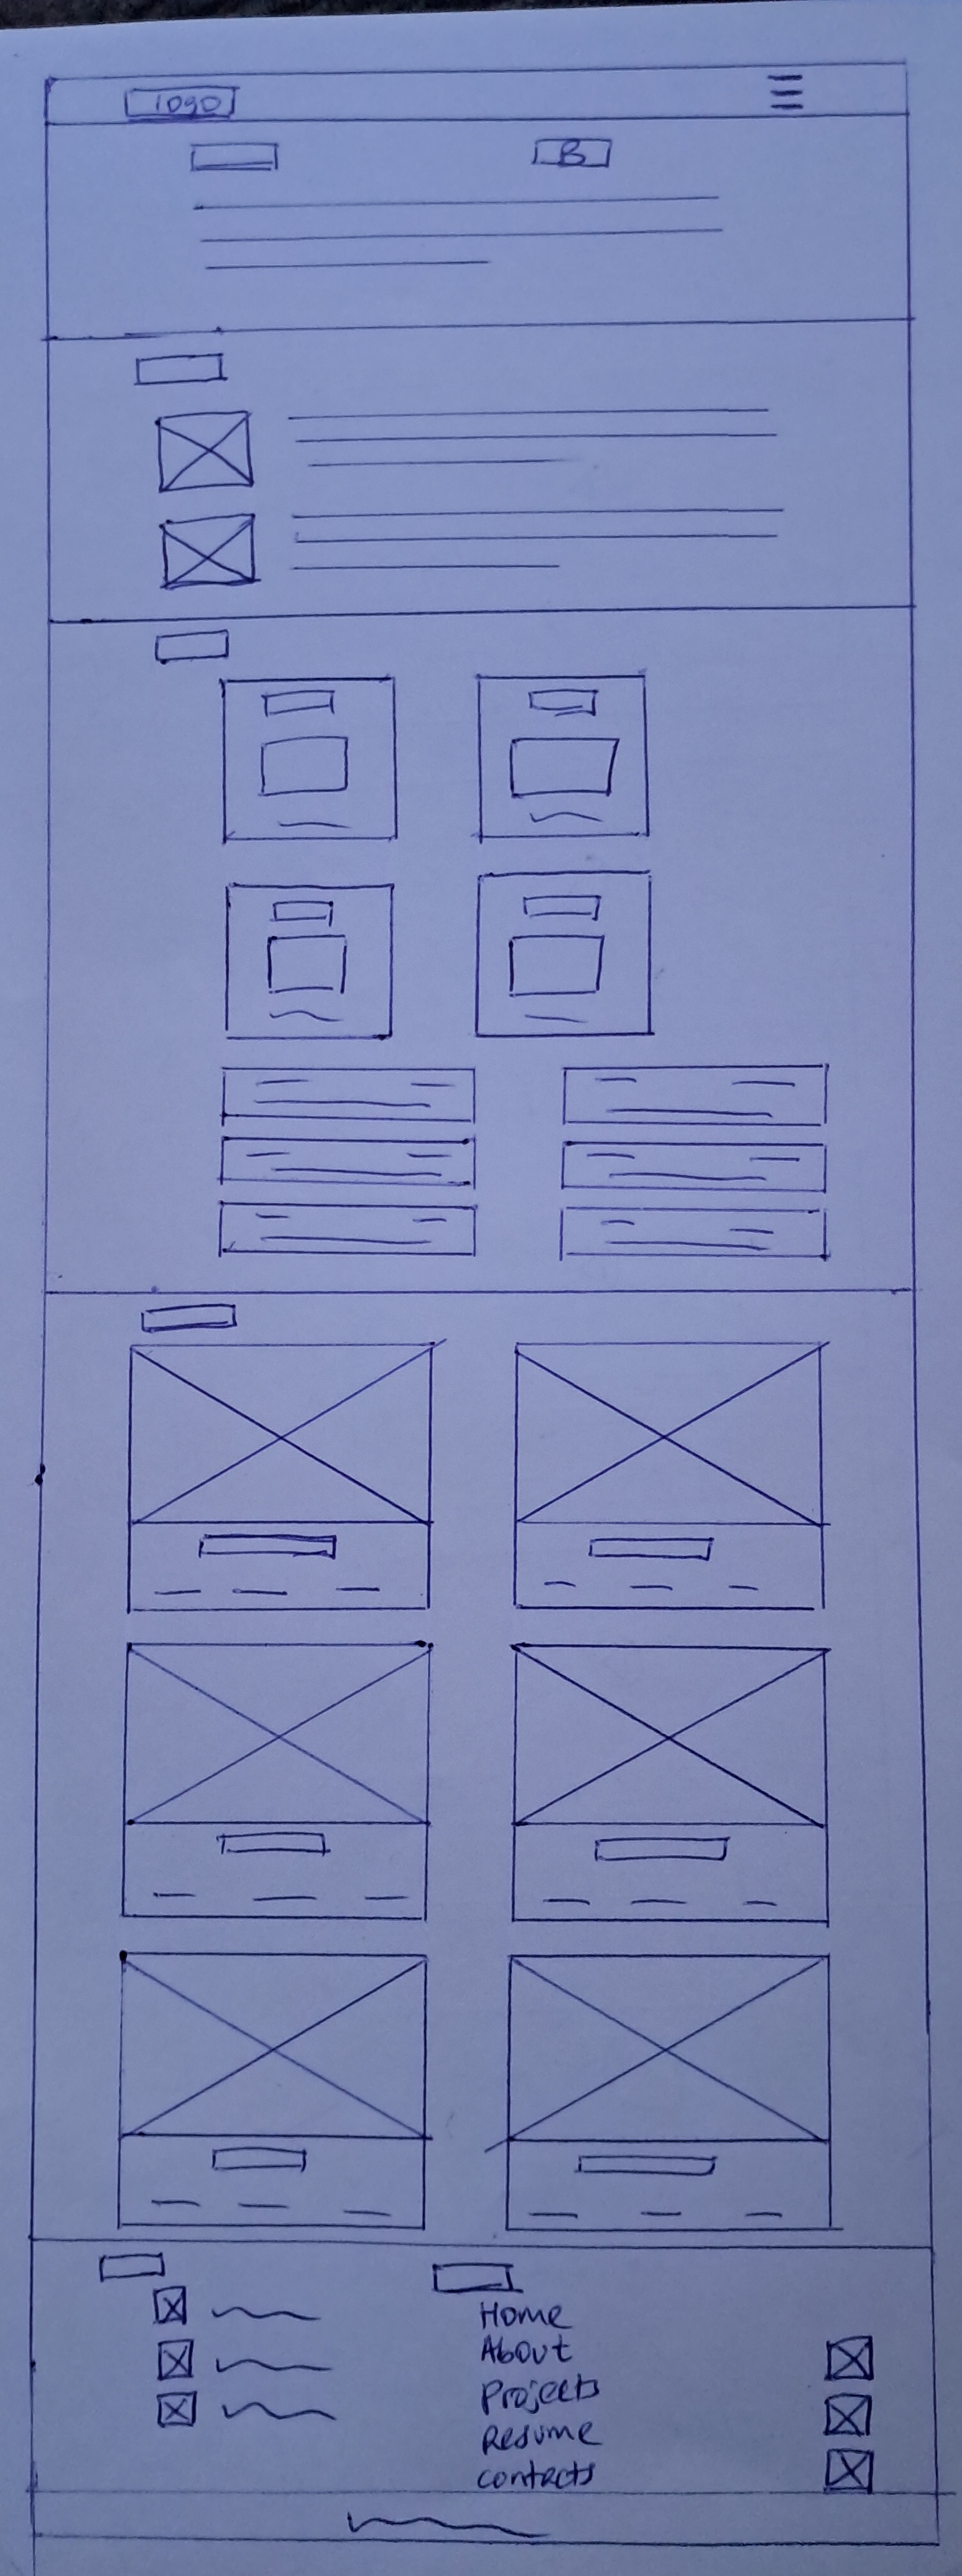 logo
B
Home
About
Projects
Resume
contacts